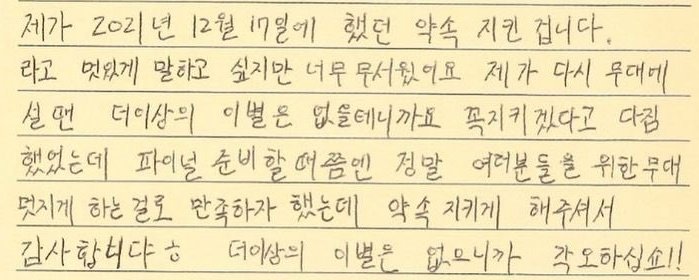 제가 2021년 12월 17일에 했던 약속 지킨 겁니다.
라고 멋있게 말하고 싶지만 너무 무서웠어요 제가 다시 무대에
설땐 더이상의 이별은 없을테니까요 꼭지키겠다고 다짐
했었는데 파이널 준비할때쯤엔 정말 여러분들을 위한무대
멋지게 하는걸로 만족하자 했는데 약속 지키게 해주셔서
감사합니다ㅎ 더이상의 이별은 없으니까 각오하십쇼!!